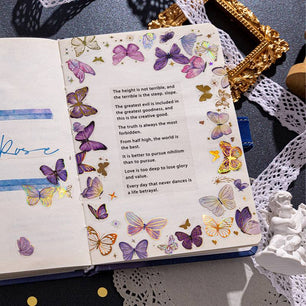 Rose
The height is not terrible, and
terrible is the steep, slope.
The greatest evil is included in
the greatest goodness, and
this is the creative good.
The truth is always the most
forbidden.
From half high, the world is
the best.
It is better to pursue nihilism
than to pursue.
Love is too deep to lose glory
and value.
Every day that never dances is
a life betrayal.